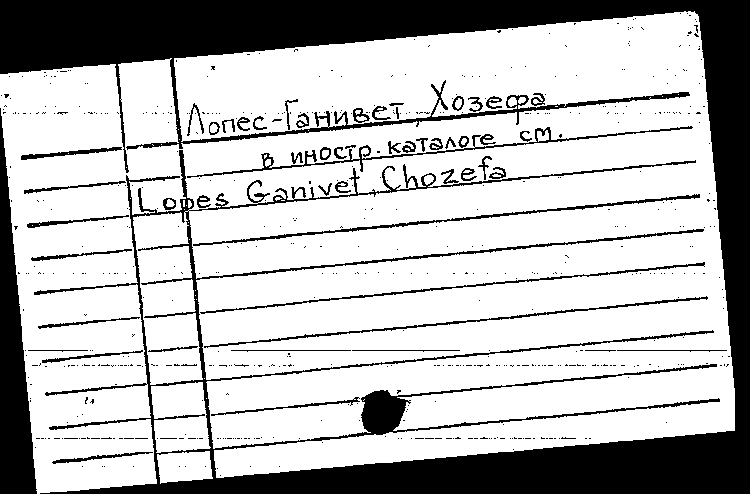 Лопес-Ганивет, Хозефа
в иностр. каталоге см.
Lopes Ganivet, Chozefa